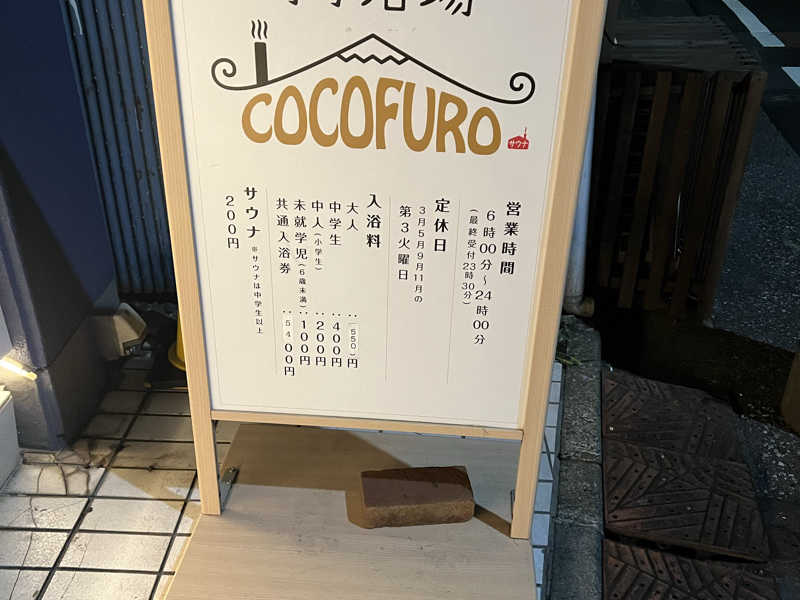 COCOFURO
サウナ
営業時間
6時00分～24時00分
(最終受付23時30分)
定休日
3月5月9月11月の
第3火曜日
入浴料
大人：550円
中学生：400円
中人(小学生)：200円
未就学児(6歳未満)：100円
共通入浴券：5400円
サウナ ※サウナは中学生以上
200円